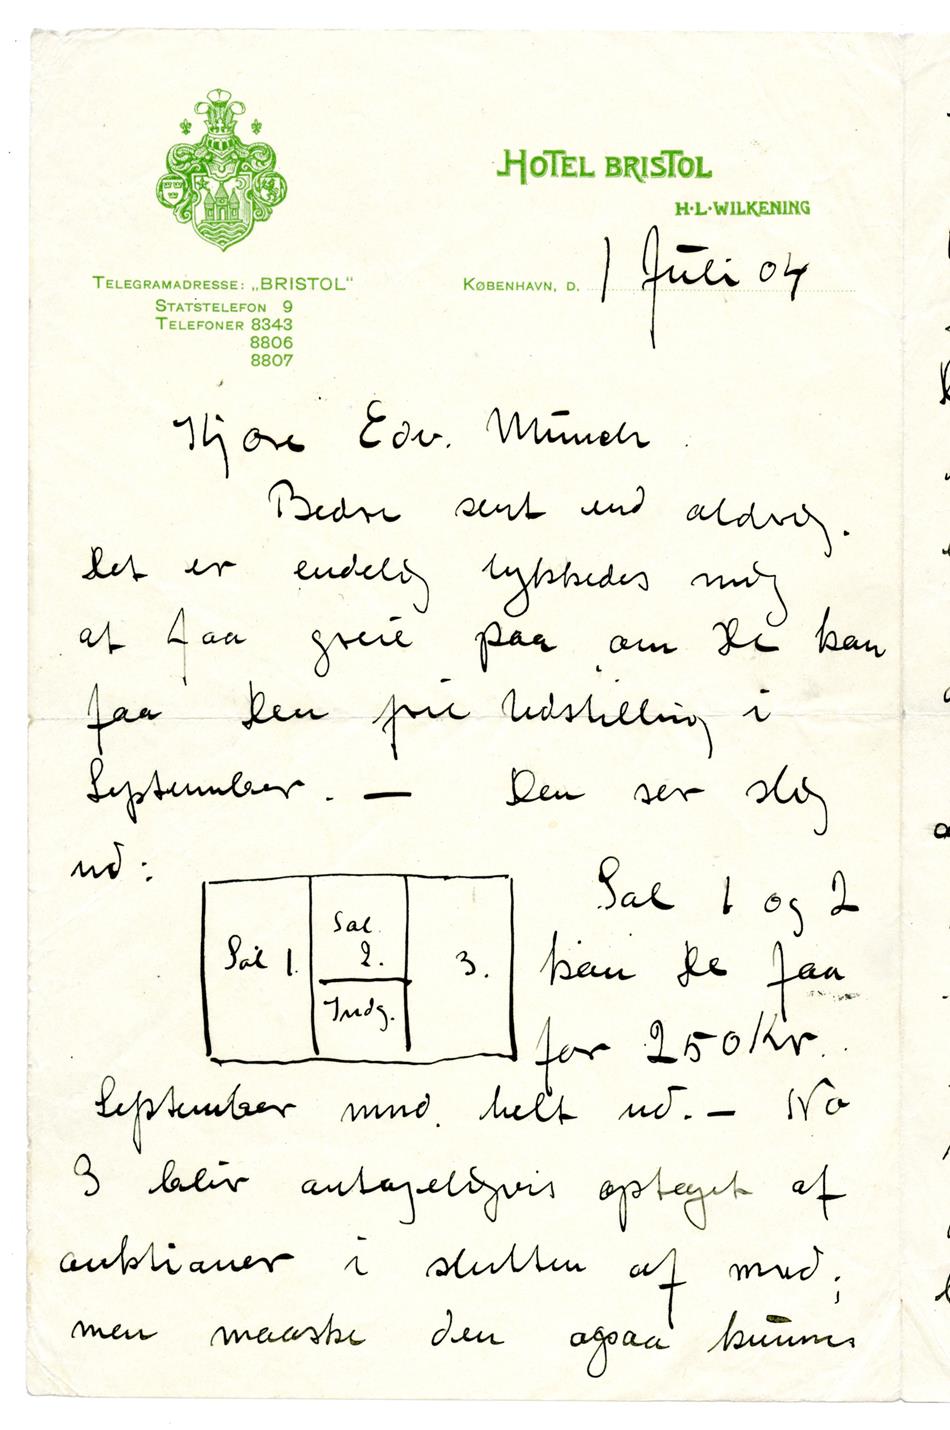 HOTEL BRISTOL
H·L·WILKENING
TELEGRAMADRESSE: „BRISTOL"
STATSTELEFON 9
TELEFONER 8343
8806
8807
KØBENHAVN, D. 1 Juli 04
Kjære Edv. Munch.
Bedre sent end aldrig.
Det er endelig lykkedes mig
at faa greie paa om De kan
faa Den frie Udstilling i
September. — Den ser slig
ud:
Sal 1.
Sal
2.
Indg.
3.
Sal 1 og 2
kan De faa
for 250 Kr.
September mnd. helt ud. — No
3 blir antageligvis optaget af
auktioner i slutten af mnd;
men maaske den ogsaa kunne